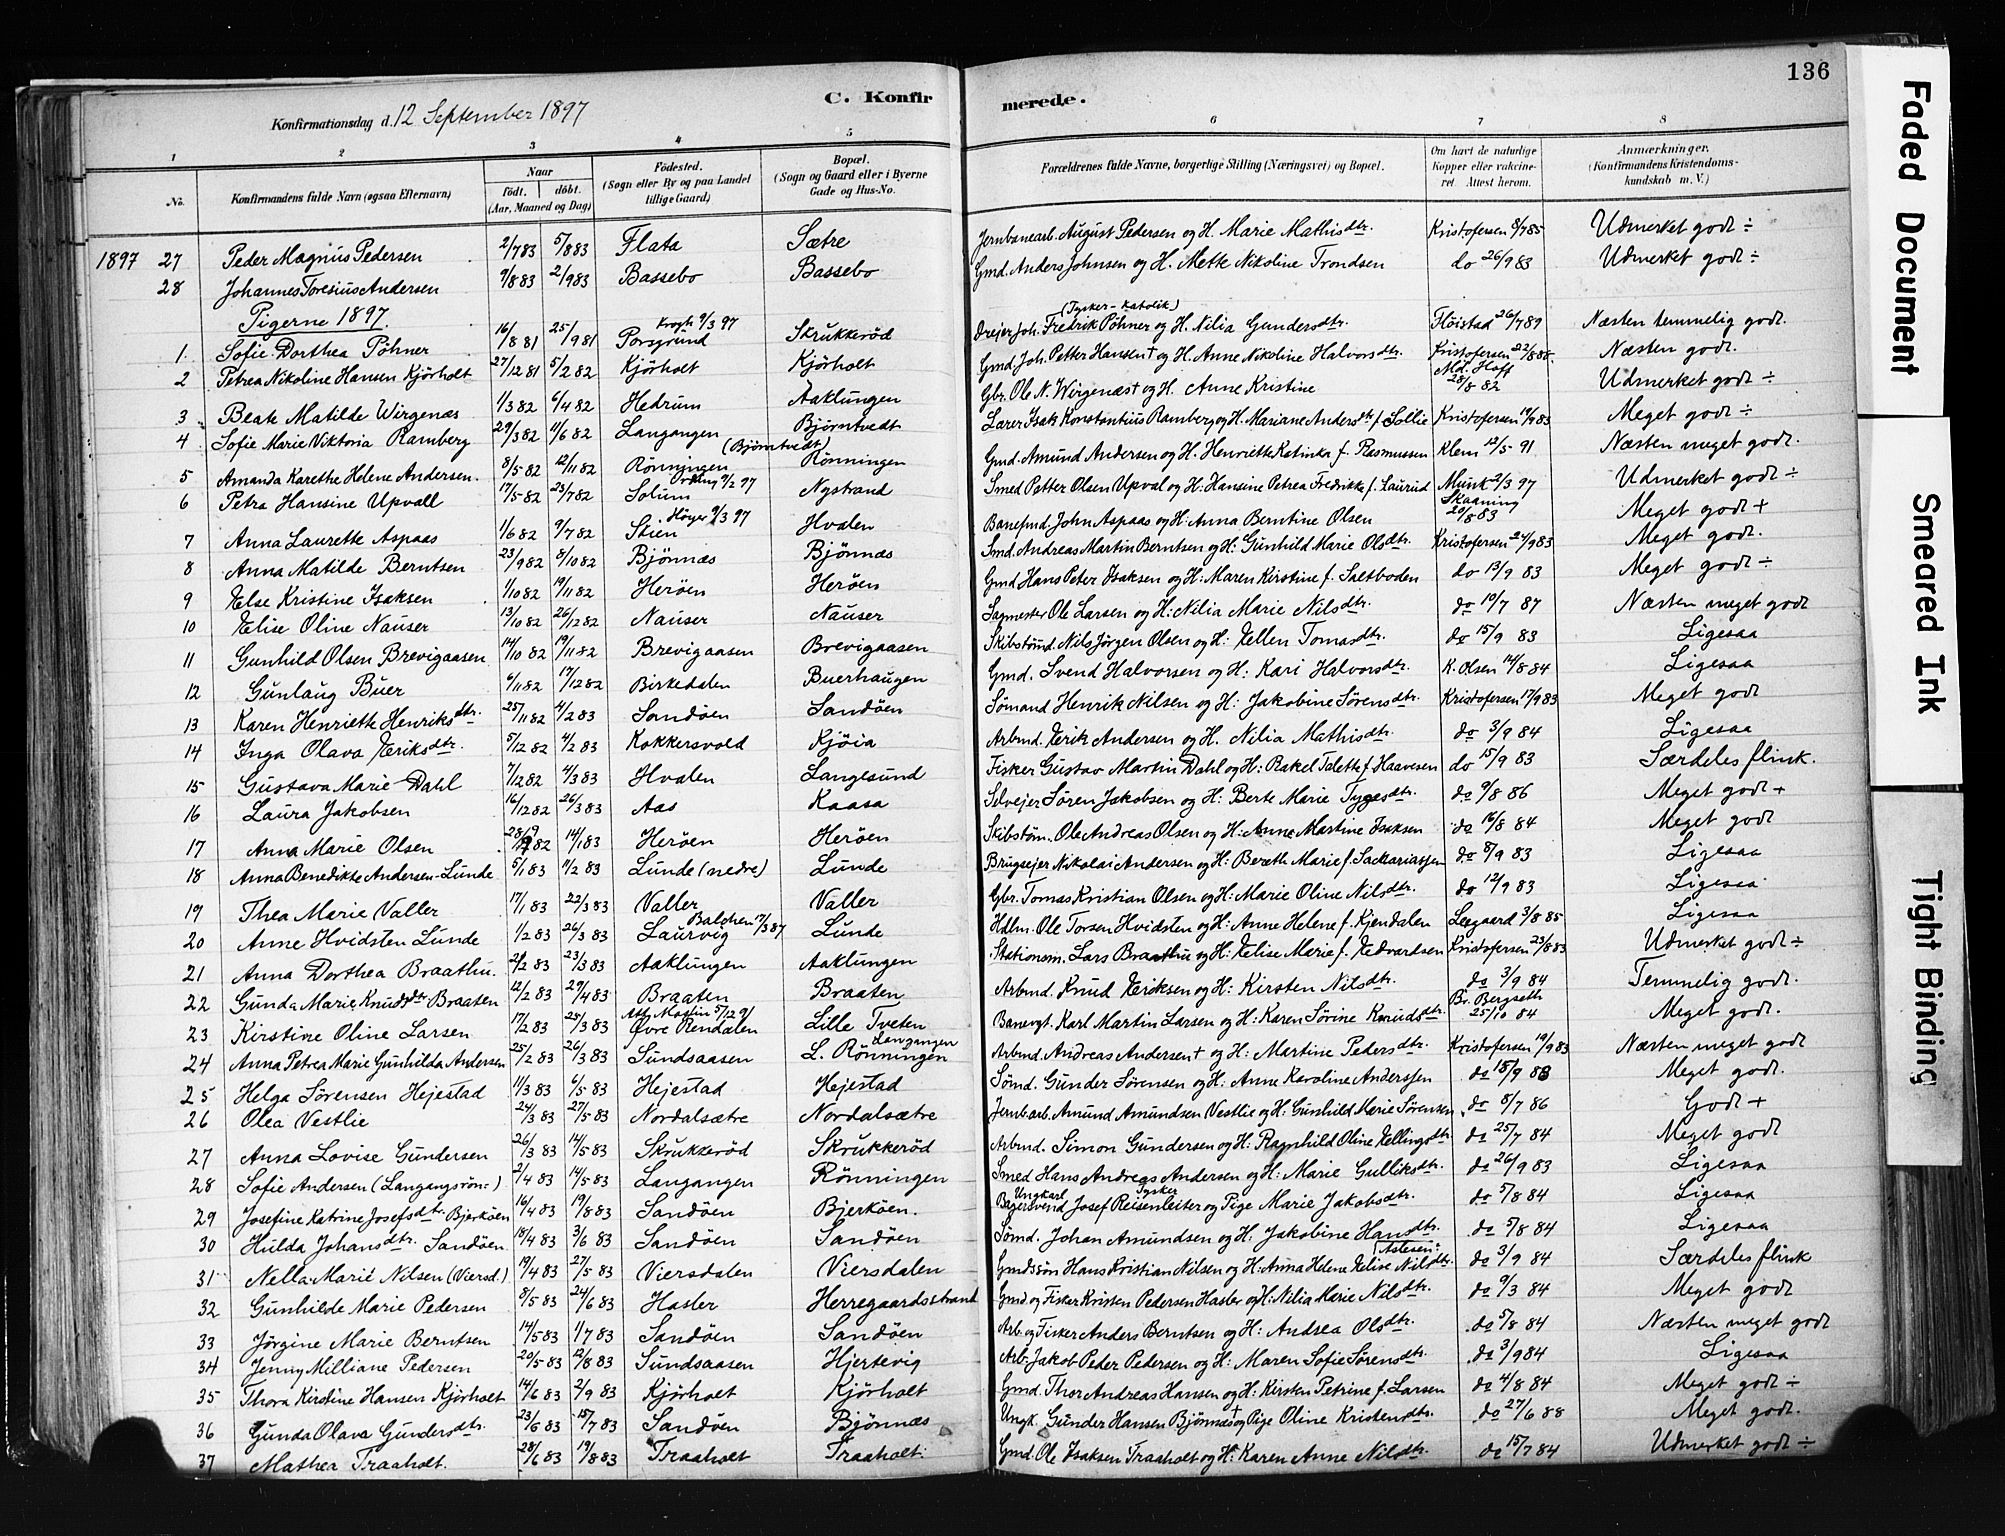 136
C. Konfirmerede.
Konfirmationsdag d. 12 September 1897
1 2 3 4 5 6 7 8
No. Konfirmandens fulde Navn (ogsaa Efternavn) Naar födt. döbt. (Aar, Maaned og Dag) Födested. (Sogn eller By og paa Landet tillige Gaard) Bopæl. (Sogn og Gaard eller i Byerne Gade og Hus-No. Forældrenes fulde Navne, borgerlige Stilling (Næringsvei) og Bopæl. Om havt de naturlige Kopper eller vakcineret. Attest herom. Anmærkninger. (Konfirmandens Kristendomskundskab m. V.)
1897 27 Peder Magnus Pedersen 2/7 83 5/8 83 Flata Sætre Jernbanearb. August Pedersen og H. Marie Mathisdtr. Kristofersen 8/7 85 Udmerket godt ÷
28 Johannes Toresius Andersen 9/8 83 2/9 83 Bassebo Bassebo Gmd. Anders Johnsen og H. Mette Nikoline Trondsen do 26/9 83 Udmerket godt ÷
Pigerne 1897.
1. Sofie Dorthea Pöhner 16/8 81 25/9 81 Krogh 9/3 97 Porsgrund Skrukkeröd Drejer Joh. Fredrik Pöhner (Tysker-Katolik) og H. Nilia Gundersdtr. Flöistad 26/7 89 Næsten temmelig godt.
2 Petrea Nikoline Hansen Kjörholt 27/12 81 5/2 82 Kjörholt Kjörholt Gmd Joh. Petter Hansen† og H. Anne Nikoline Halvorsdtr. Kristofersen 22/8 88. Næsten godt.
3 Beate Matilde Wirgenæs 1/3 82 6/4 82 Hedrum Aaklungen Gbr. Ole N. Wirgenæs† og H. Anne Kristine Md. Hoff 28/8 82 Udmerket godt ÷
4 Sofie Marie Viktoria Ramberg 29/3 82 11/6 82 Langangen (Bjørntvedt) Bjørntvedt Lærer Isak Konstantius Ramberg og H. Mariane Andersdtr f. Sollie Kristofersen 14/9 83 Meget godt ÷
5 Amanda Karethe Helene Andersen. 8/5 82 12/11 82 Rönningen Rönningen Gmd. Amund Andersen og H. Henriette Katinka f. Rasmussen Klem 12/5 91 Næsten meget godt.
6 Petra Hansine Upvall 17/5 82 23/7 82 Solum Nystrand Smed Petter Olsen Upval og H: Hansine Petrea Fredrikke f. Laurud Munk 2/3 97 Udmerket godt ÷
7 Anna Laurette Aspaas 1/6 82 9/7 82 Höyer 9/3 97 Skien Hvalen Banefmd. John Aspaas og H: Anna Berntine Olsen Skaaning 20/8 83 Meget godt +
8 Anna Matilde Berntsen 23/9 82 8/10 82 Bjönnæs Bjönnæs Smd. Andreas Martin Berntsen og H: Gunhild Marie Olsdtr. Kristofersen 24/9 83 Meget godt.
9 Else Kristine Isaksen 1/10 82 19/11 82 Heröen Heröen Gmd Hans Peter Isaksen og H: Maren Kirstine f. Saltboden do 13/9 83 Meget godt ÷
10 Elise Oline Nauser 13/10 82 26/12 82 Nauser Nauser Sagmester Ole Larsen og H: Nilia Marie Nilsdtr. do 19/7 87 Næsten meget godt
11 Gunhild Olsen Brevigaasen 14/10 82 19/11 82 Brevigaasen Brevigaasen Skibstömd. Nils Jörgen Olsen og H: Ellen Tomasdtr. do 15/9 83 Ligesaa
12 Gunlaug Buer 6/11 82 17/12 82 Birkedalen Buerhaugen Gmd. Svend Halvorsen og H: Kari Halvorsdtr. K. Olsen 14/8 84 Ligesaa
13 Karen Henriette Henriksdtr. 25/11 82 4/2 83 Sandöen Sandöen Sömand Henrik Nilsen og H: Jakobine Sörensdtr. Kristofersen 17/9 83 Meget godt
14 Inga Olava Eriksdtr. 5/12 82 4/2 83 Kokkersvold Kjöia Arbmd. Erik Andersen og H. Nilia Mathisdtr. do 3/9 84 Ligesaa
15 Gustava Marie Dahl 7/12 82 4/3 83 Hvalen Langesund Fisker Gustav Martin Dahl og H: Rakel Talette f. Haavesen do 15/9 83 Særdeles flink.
16 Laura Jakobsen 16/12 82 26/3 83 Aas Kaasa Selvejer Sören Jakobsen og H: Berte Marie Tygesdtr. do 9/8 86 Meget godt +
17 Anna Marie Olsen 82 14/1 83 Heröen Heröen Skibstöm. Ole Andreas Olsen og H: Anne Martine Isaksen do 16/8 84 Meget godt
18 Anna Benedikte Andersen-Lunde 5/1 83 11/2 83 Lunde (nedre) Lunde Brugsejer Nikolai Andersen og H: Bereth Marie f. Sackariassen do 8/9 83 Ligesaa
19 Thea Marie Valler 17/1 83 22/3 83 Valler Valler Gbr. Tomas Kristian Olsen og H: Marie Oline Nilsdtr. do 12/9 83 Ligesaa
20 Anne Hvidsten Lunde 1/2 83 26/3 83 Balchen 17/3 87 Laurvig Lunde Hdlm. Ole Torsen Hvidsten og H: Anne Helene f. Kjendalen Leegaard 3/8 85 Ligesaa
21 Anna Dorthea Braathu. 2/2 83 23/3 83 Aaklungen Aaklungen Stationsm. Lars Braathu og H: Elise Marie f. Edvardsen Kristofersen 23/8 83 Udmerket godt ÷
22 Gunda Marie Knudsdtr Braaten 12/2 83 29/4 83 Braaten Braaten Arbmd. Knud Eriksen og H: Kirsten Nilsdtr. do 3/9 84 Temmelig godt.
23 Kirstine Oline Larsen 17/2 83 25/3 83 Øvre Rendalen Lille Tveten Banevgt. Karl Martin Larsen og H: Karen Sörine Knudsdtr. Br. Bergseth 25/10 84 Meget godt.
24 Anna Petrea Marie Gunhilda Andersen 25/2 83 26/3 83 Sundsaasen L. Rönningen Langangen Arbmd. Andreas Andersen† og H: Martine Pedersdtr. Kristofersen 19/9 83 Næsten meget godt
25 Helga Sörensen Hejestad 11/3 83 6/5 83 Hejestad Hejestad Sömd. Gunder Sörensen og H: Anne Karoline Anderssen do 18/9 83 Meget godt.
26 Olea Vestlie 24/3 83 27/5 83 Nordalsætre Nordalsætre Jernb.arb. Amund Amundsen Vestlie og H: Gunhild Marie Sörensen do 8/7 86 Godt +
27 Anna Lovise Gundersen 26/3 83 14/5 83 Skrukkeröd Skrukkeröd Arbmd. Simon Gundersen og H: Ragnhild Oline Ellingsdtr. do 25/7 84 Meget godt
28 Sofie Andersen (Langangsrön:) 2/4 83 14/5 83 Langangen Rönningen Smed Hans Andreas Andersen og H: Marie Gulliksdtr. do 26/9 83 Ligesaa
29 Josefine Katrine Josefsdtr. Bjerköen 16/4 83 19/8 83 Sandöen Bjerköen. Ungkarl Bagersvend Josef Reisenleiter Tysker og Pige Marie Jakobsdtr. do 5/8 84 Ligesaa
30 Hulda Johansdtr. Sandöen 18/4 83 3/6 83 Sandöen Sandöen Sömd. Johan Amundsen og H: Jakobine Hansdtr. do 5/8 84 Ligesaa
31 Nella Marie Nilsen (Viersd.) 19/4 83 27/5 83 Viersdalen Viersdalen Gmdssön Hans Kristian Nilsen og H: Anna Helene Elise Nilsdtr. do 3/9 84 Særdeles flink
32 Gunhilde Marie Pedersen 8/5 83 24/6 83 Hasler Herregaardsstrand Gmd. og Fisker Kristen Pedersen Hasler og H: Nilia Marie Nilsdtr. do 9/3 84 Meget godt
33 Jörgine Marie Berntsen 14/5 83 1/7 83 Sandöen Sandöen Arb. og Fisker Anders Berntsen og H: Andrea Olsdtr. do 5/8 84 Næsten meget godt
34 Jenny Milliane Pedersen 20/5 83 12/8 83 Sundsaasen Hjertevig Arb. Jakob Peder Pedersen og H: Maren Sofie Sörensdtr. do 3/9 84 Ligesaa
35 Thora Kirstine Hansen Kjörholt 14/6 83 2/9 83 Kjörholt Kjörholt Gmd. Thor Andreas Hansen og H: Kirsten Petrine f. Larsen do 4/8 84 Meget godt ÷
36 Gunda Olava Gundersdtr. 23/6 83 15/7 83 Sandöen Bjönnæs Ungk. Gunder Hansen Bjönnæs† og Pige Oline Kristensdtr. do 27/6 88 Meget godt.
37 Mathea Traaholt. 28/6 83 19/8 83 Traaholt Traaholt. Gmd. Ole Isaksen Traaholt og H: Karen Anne Nilsdtr. do 15/7 84 Udmerket godt ÷
Faded Document
Smeared Ink
Tight Binding